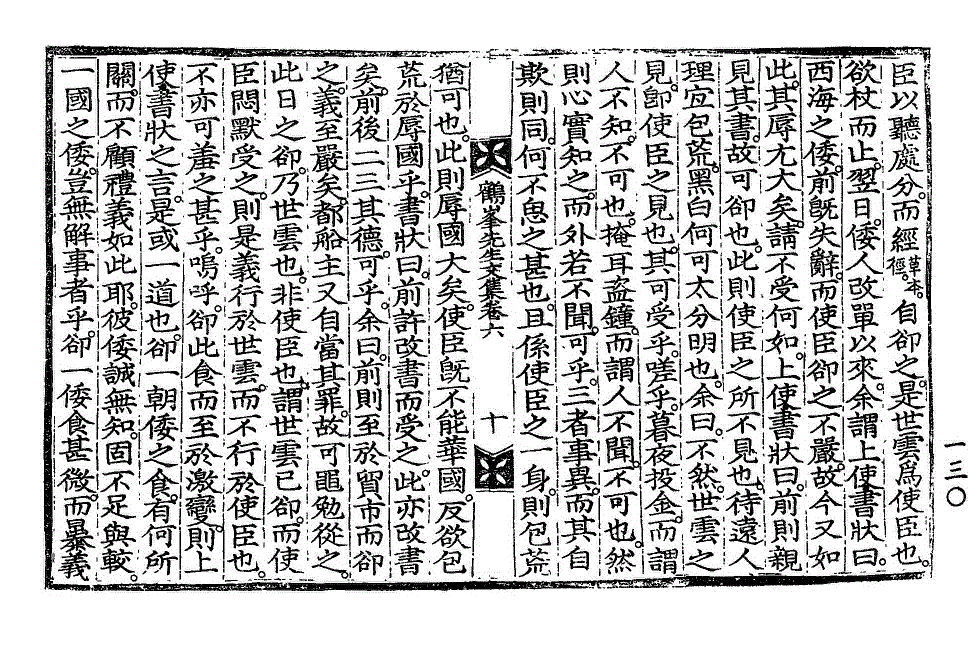 臣以聽處分。而經草本徑。自卻之。是世雲爲使臣也。
欲杖而止。翌日。倭人改單以來。余謂上使書狀曰。
西海之倭。前旣失辭。而使臣卻之不嚴。故今又如
此。其辱尤大矣。請不受何如。上使書狀曰。前則親
見其書。故可卻也。此則使臣之所不見也。待遠人
理宜包荒。黑白何可太分明也。余曰。不然。世雲之
見。卽使臣之見也。其可受乎。嗟乎。暮夜投金。而謂
人不知。不可也。掩耳盜鐘。而謂人不聞。不可也。然
則心實知之。而外若不聞。可乎。三者事異。而其自
欺則同。何不思之甚也。且係使臣之一身。則包荒
鶴峯先生文集卷六
十
猶可也。此則辱國大矣。使臣旣不能華國。反欲包
荒於辱國乎。書狀曰。前許改書而受之。此亦改書
矣。前後二三其德。可乎。余曰。前則至於貿市而卻
之。義至嚴矣。都船主又自當其罪。故可黽勉從之。
此日之卻。乃世雲也。非使臣也。謂世雲已卻。而使
臣悶默受之。則是義行於世雲。而不行於使臣也。
不亦可羞之甚乎。嗚呼。卻此食而至於激變。則上
使書狀之言。是或一道也。卻一朝倭之食。有何所
關。而不顧禮義如此耶。彼倭誠無知。固不足與較。
一國之倭。豈無解事者乎。卻一倭食甚微。而暴義
一三〇